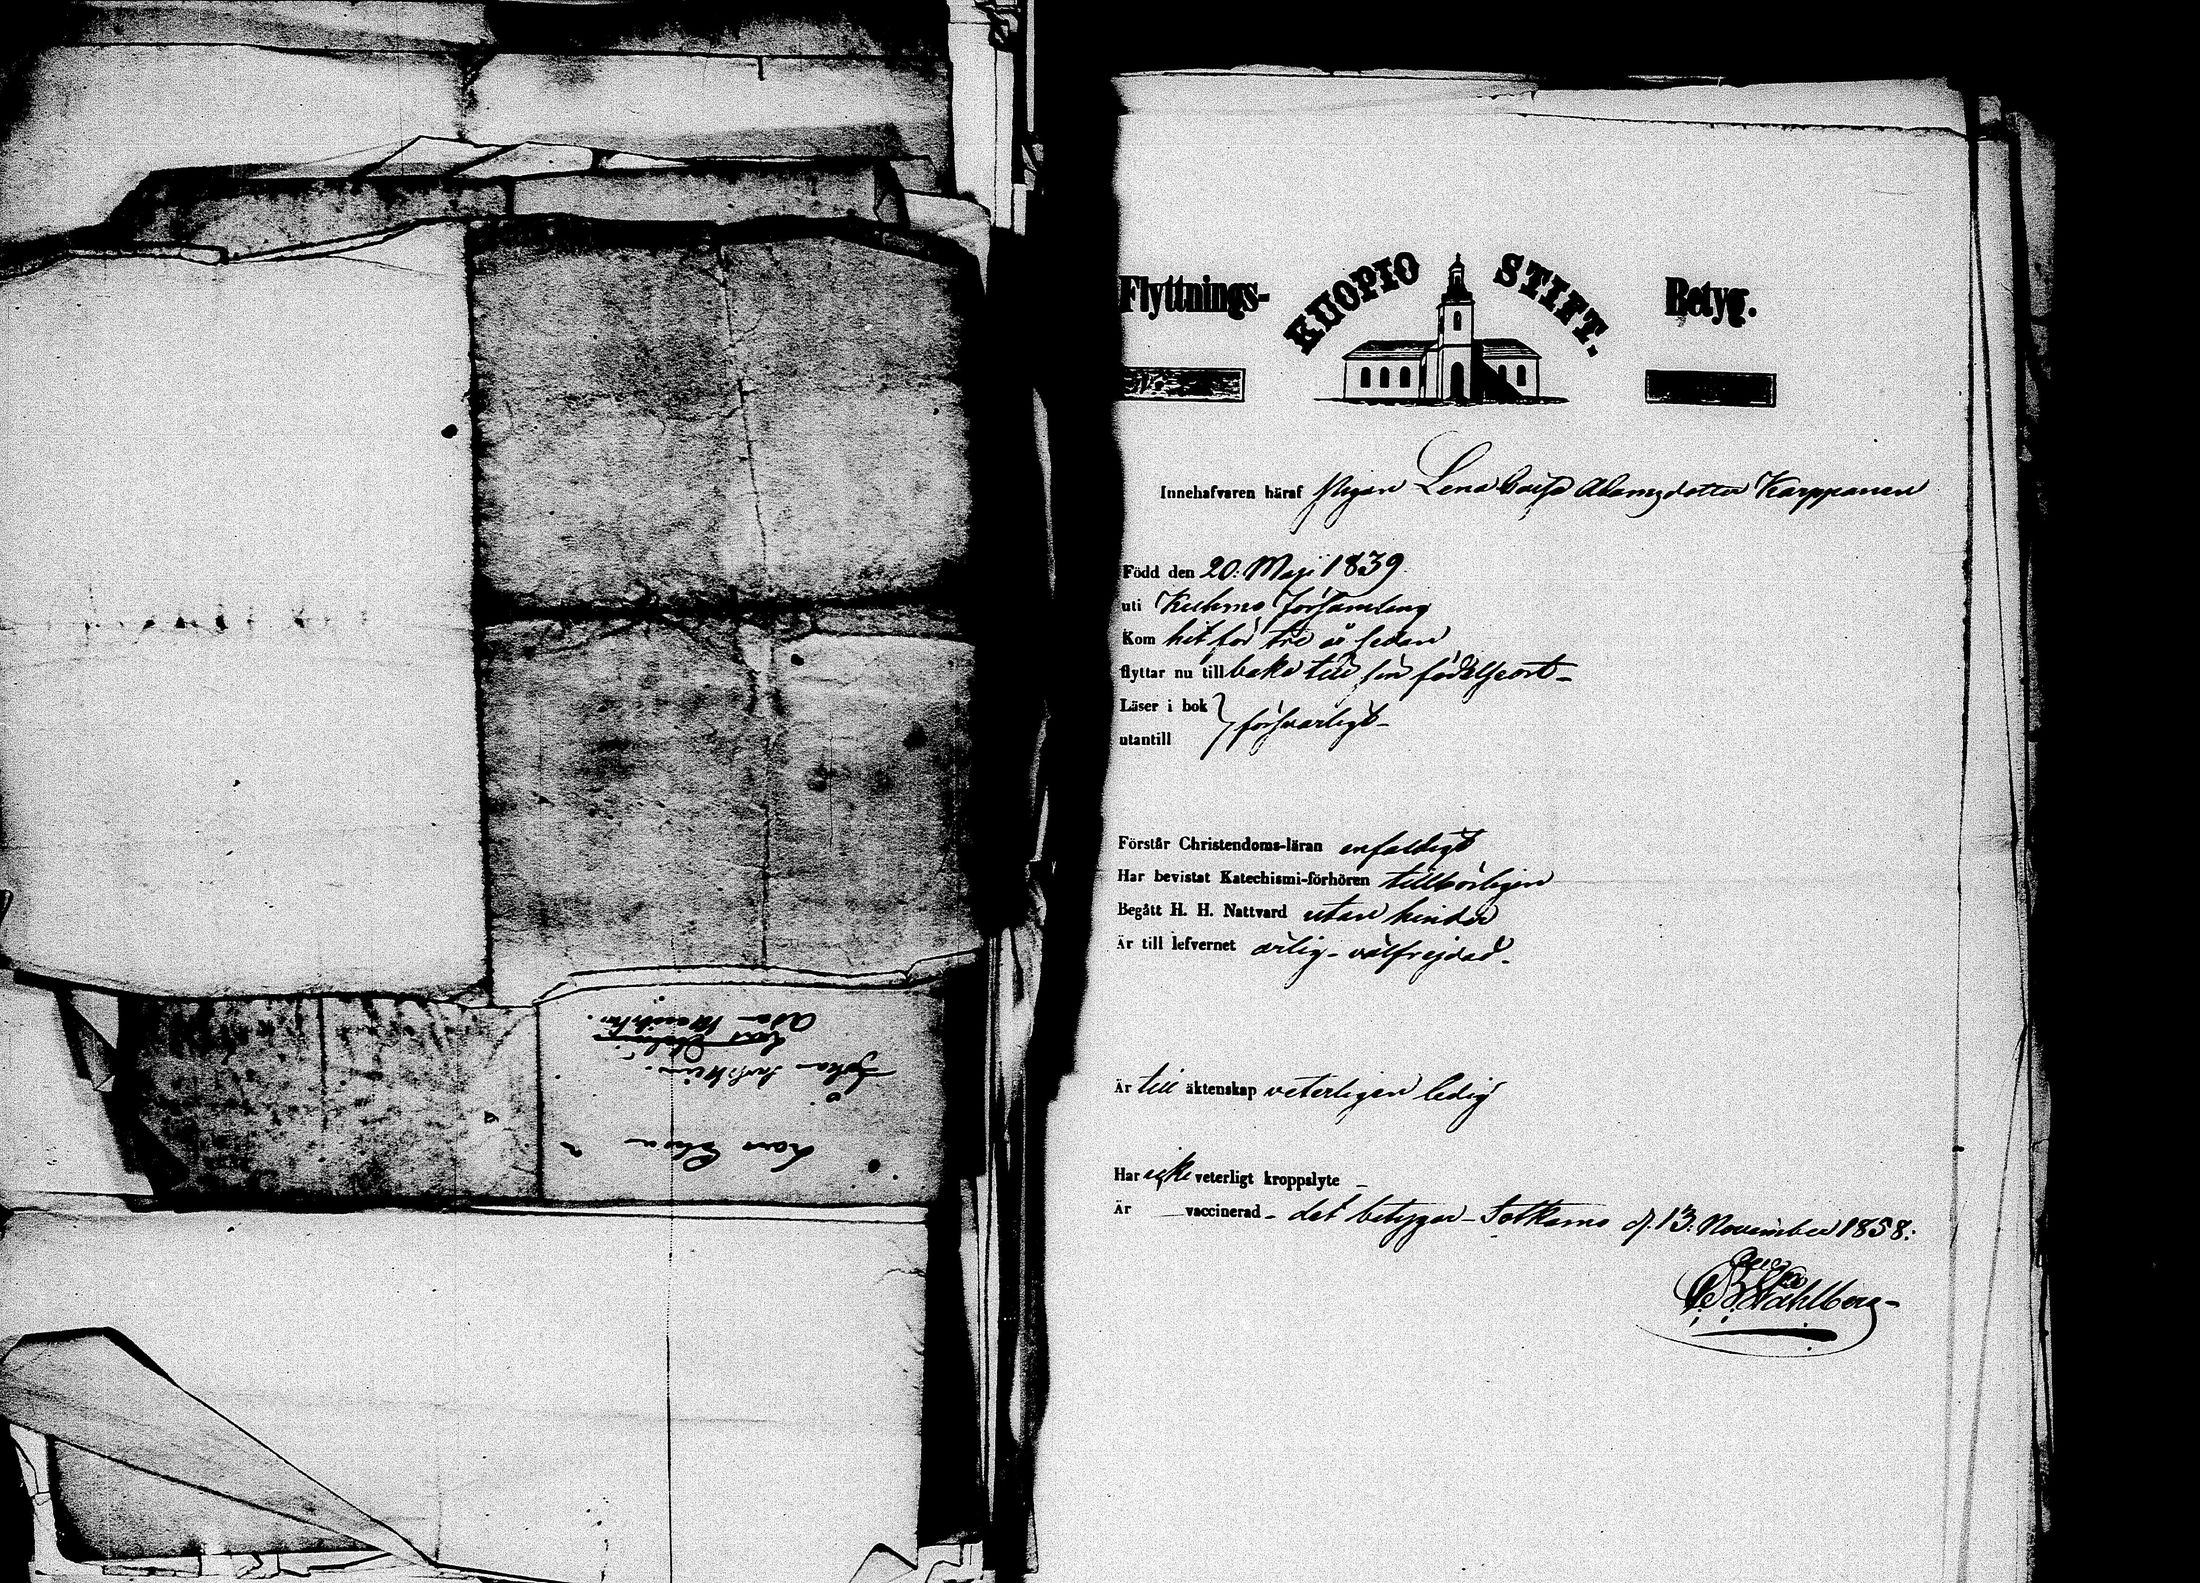 Flyttnings- KUOPIO STIFT. Betyg.
Innehafvaren häraf Pigan Lena Caisa Adamsdotter Karppanen
Född den 20: Maji 1839
uti Kuhmo församling
Kom hit för tre år sedan
flyttar nu tillbaka till sin födelseort -
Läser i bok
utantill } försvarligt -
Förstår Christendoms-läran enfaldigt
Har bevistat Katechismi-förhören tillbörligen
Begått H. H. Nattvard utan hinder
Är till lefvernet ärlig - välfrejdad.
Är till äktenskap veterligen ledig
Har icke veterligt kroppslyte -
Är — vaccinerad - det betygar - Sotkamo d. 13: November 1858:
Wahlberg -
Johan
Lars